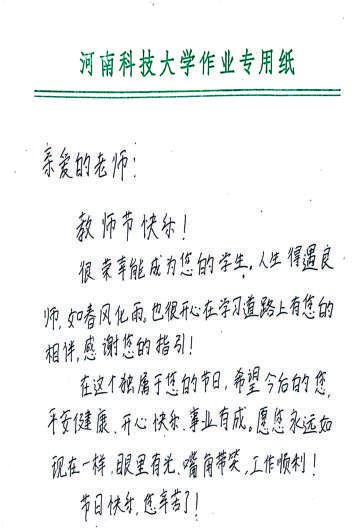 河南科技大学作业专用纸
亲爱的老师：
教师节快乐！
很荣幸能成为您的学生。人生得遇良
师，如春风化雨。也很开心在学习道路上有您的
相伴，感谢您的指引！
在这个独属于您的节日，希望今后的您，
平安健康、开心快乐、事业有成。愿您永远如
现在一样，眼里有光、嘴角带笑，工作顺利！
节日快乐，您辛苦了！